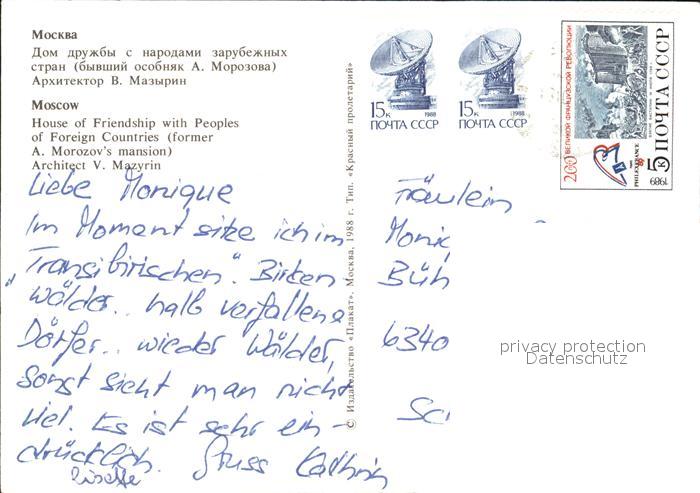 Москва
Дом дружбы с народами зарубежных
стран (бывший особняк А. Морозова)
Архитектор В. Мазырин
Moscow
House of Friendship with Peoples
of Foreign Countries (former
A. Morozov's mansion)
Architect V. Mazyrin
Liebe Monique
Im Moment sitze ich im
„Transibirischen". Birken
wälder.. halb verfallene
Dörfer.. wieder Wälder,
sonst sieht man nicht
viel. Es ist sehr ein-
drücklich. Gruss Kathrin
Lisette
© Издательство «Плакат», Москва, 1988 г. Тип. «Красный пролетарий»
15к 1988
ПОЧТА СССР
15к 1988
ПОЧТА СССР
200 ВЕЛИКОЙ ФРАНЦУЗСКОЙ РЕВОЛЮЦИИ
PHILEXFRANCE 89
ПОЧТА СССР
15к
1989
Fräulein
Moni
Büh
6340
privacy protection
Datenschutz